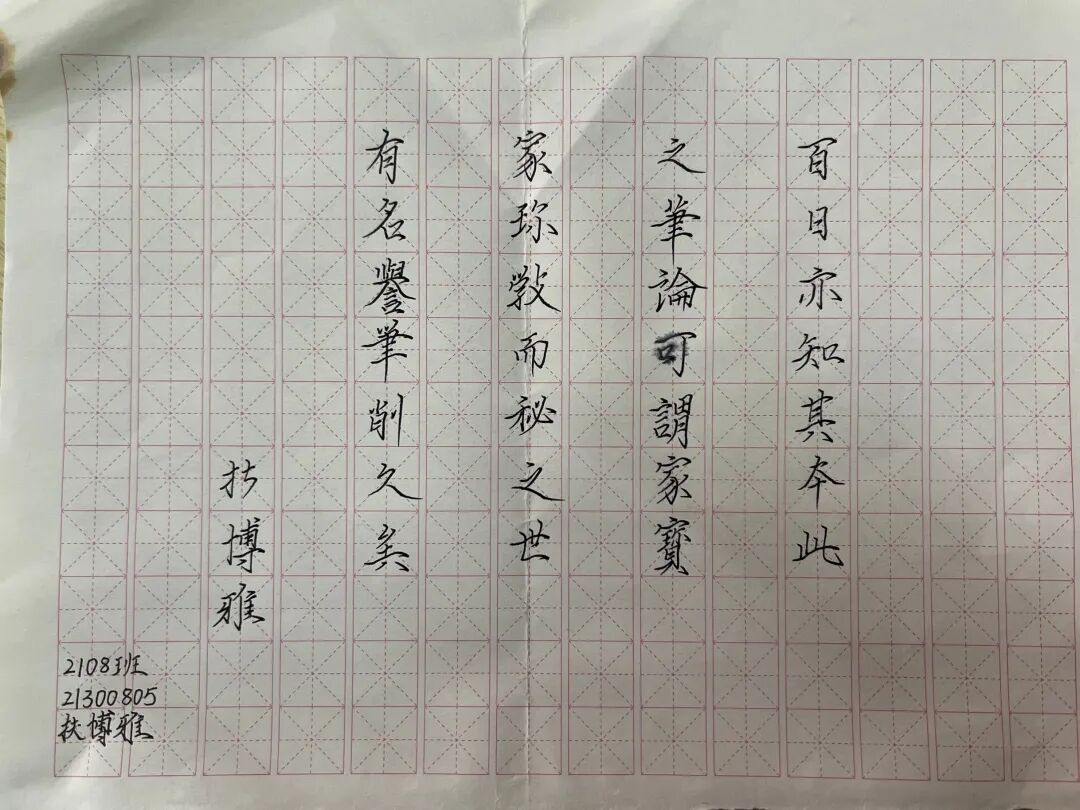 百日亦知其本此
之筆論可謂家寶
家珍學而秘之世
有名譽筆削久矣
扶博雅
2108班
21300805
扶博雅